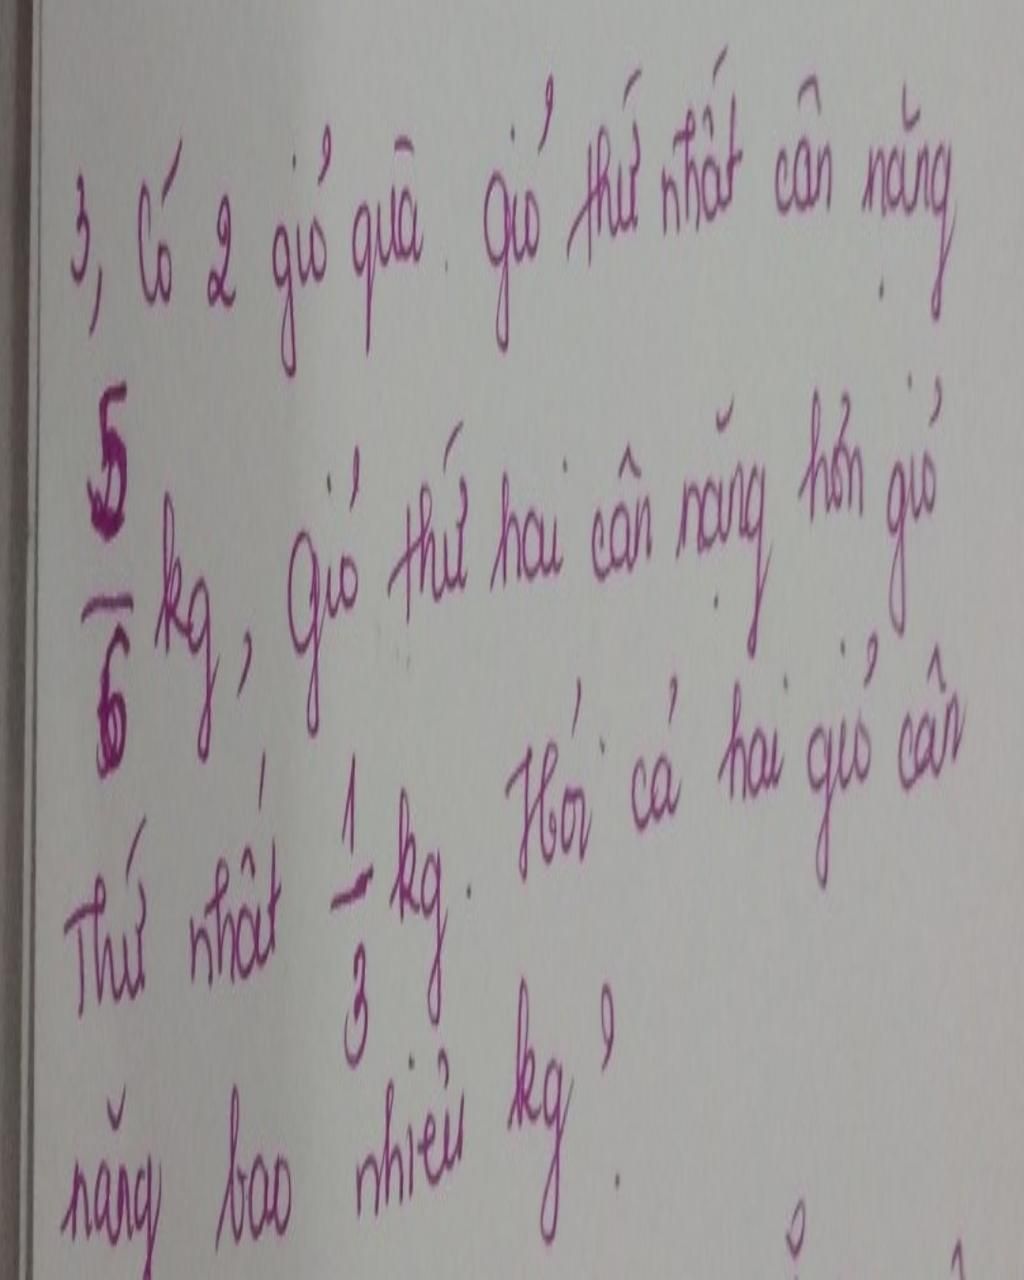 3, Có 2 giỏ quà. Giỏ thứ nhất cân nặng
5/6 kg, Giỏ thứ hai cân nặng hơn giỏ
Thứ nhất 1/3 kg. Hỏi cả hai giỏ cân
nặng bao nhiêu kg?